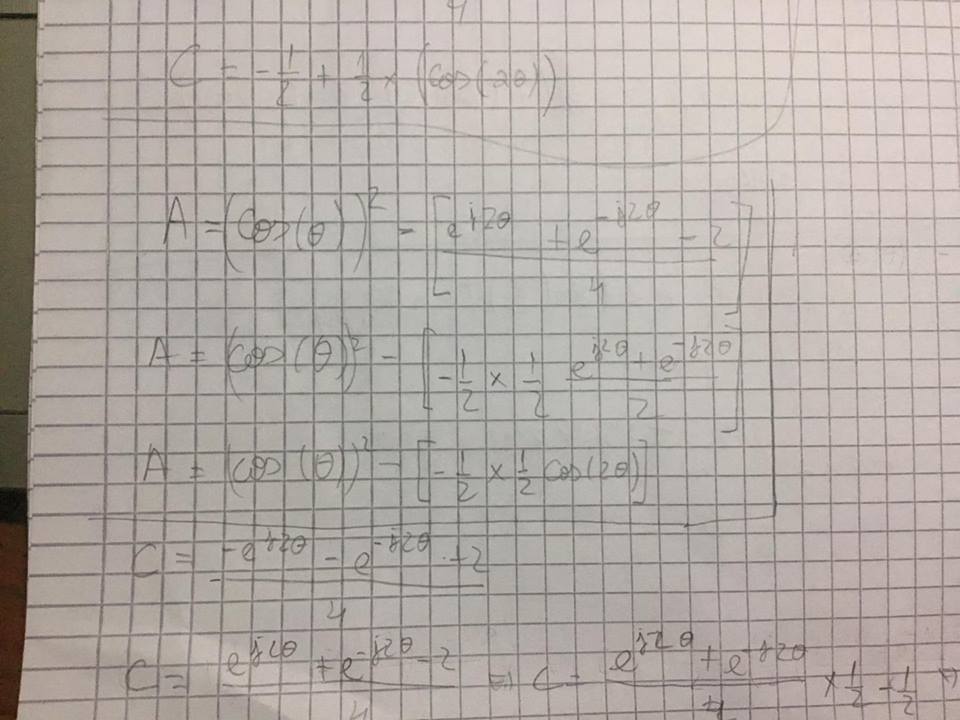 C = -1/2 + 1/2 × (cos(2θ))
A = (cos(θ))² - [e^j2θ + e^-j2θ - 2 / 4]
A = (cos(θ))² - [-1/2 × 1/2 e^j2θ + e^-j2θ / 2]
A = (cos(θ))² - [-1/2 × 1/2 cos(2θ)]
C = - -e^j2θ - e^-j2θ + 2 / 4
C = e^j2θ + e^-j2θ - 2 / 4 ⇒ C = e^j2θ + e^-j2θ / 4 × 1/2 - 1/2 ⇒